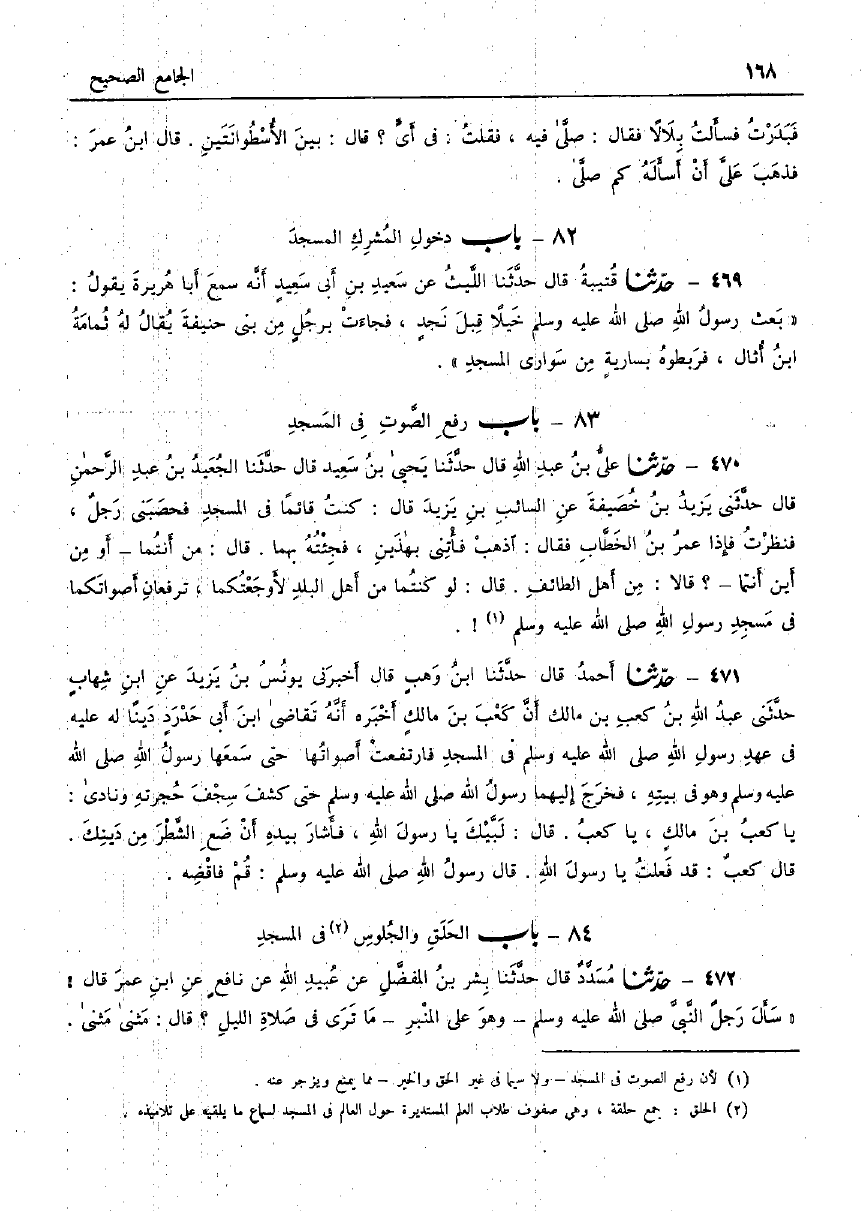 ١٦٨
الجامع الصحيح
فَبَدَرْتُ فسأَلتُ بِلَالًا فقال : صلَّىٰ فيه ، فقلتُ : فى أَىٍّ ؟ قال : بينَ الأُسْطُوانَتَينِ . قال ابنُ عمرَ :
فذهَبَ عَلىَّ أَنْ أَسأَلَهُ كم صلَّىٰ .
٨٢ – باب دخولِ المُشرِكِ المسجدَ
٤٦٩ – حدّثنا قُتيبةُ قال حدَّثَنا اللَّيثُ عن سَعيدِ بنِ أَبى سَعِيدٍ أَنَّه سمعَ أَبا هُريرةَ يقولُ :
« بَعث رسولُ اللهِ صلى الله عليه وسلم خَيلًا قِبلَ نَجدٍ ، فجاءَتْ برجُلٍ مِن بنى حنيفةَ يُقالُ لهُ ثُمامَةُ
ابنُ أُثال ، فرَبطوهُ بساريةٍ مِن سَوارى المسجدِ » .
٨٣ – باب رفعِ الصَّوتِ فى المَسجدِ
٤٧٠ – حدّثنا علىُّ بنُ عبدِ اللهِ قال حدَّثَنا يَحيىٰ بنُ سَعِيد قال حدَّثَنا الجُعَيدُ بنُ عبدِ الرَّحمٰنِ
قال حدَّثَنى يَزيدُ بنُ خُصَيفةَ عنِ السائبِ بنِ يَزيدَ قال : كنتُ قائمًا فى المسجدِ فحصَبَنى رَجلٌ ،
فنظرْتُ فإِذا عمرُ بنُ الخطَّابِ فقال : ٱذهبْ فأْتِنى بهٰذَينِ ، فجِئْتُهُ بهما . قال : من أَنتُما – أَو مِن
أَين أَنتما – ؟ قالا : مِن أَهل الطائفِ . قال : لو كنتُما من أَهل البلدِ لأَوجَعْتُكما ، ترفعانِ أَصواتَكما
فى مَسجِدِ رسولِ اللهِ صلى الله عليه وسلم (١) ! .
٤٧١ – حدّثنا أَحمدُ قال حدَّثَنا ابنُ وَهبٍ قال أَخبرَنى يونُسُ بنُ يَزيدَ عنِ ابنِ شِهابٍ
حدَّثَنى عبدُ اللهِ بنُ كعبِ بن مالك أَنَّ كَعْبَ بنَ مالكٍ أَخْبَره أَنَّهُ تَقاضىٰ ابنَ أَبى حَدْرَدٍ دَينًا له عليه
فى عهدِ رسولِ اللهِ صلى الله عليه وسلم فى المسجدِ فارتفعتْ أَصواتُها حتى سَمعَها رسولُ اللهِ صلى الله
عليه وسلم وهو فى بيتِهِ ، فخرَجَ إِليهما رسولُ اللهِ صلى الله عليه وسلم حتى كشفَ سِجْفَ حُجرتهِ ونادىٰ :
يا كعبُ بنَ مالكٍ ، يا كعبُ . قال : لَبَّيْكَ يا رسولَ اللهِ ، فأَشارَ بيدهِ أَنْ ضَعِ الشَّطْرَ مِن دَينِكَ .
قال كعبٌ : قد فَعلتُ يا رسولَ اللهِ . قال رسولُ اللهِ صلى الله عليه وسلم : قُمْ فاقْضِه .
٨٤ – باب الحَلَقِ والجُلوسِ (٢) فى المسجدِ
٤٧٢ – حدّثنا مُسَدَّدٌ قال حدَّثَنا بِشر بنُ المُفضَّلِ عن عُبيدِ اللهِ عن نافعٍ عنِ ابنِ عمرَ قال :
« سَأَلَ رَجلٌ النَّبىَّ صلى الله عليه وسلم – وهوَ على المنْبرِ – مَا تَرَى فى صَلاةِ الليلِ ؟ قال : مَثنىٰ مَثنىٰ .
(١) لأن رفع الصوت فى المسجد – ولا سيما فى غير الحق والخير – مما يمنع ويزجر عنه .
(٢) الحلق : جمع حلقة ، وهى صفوف طلاب العلم المستديرة حول العالم فى المسجد لسماع ما يلقيه على تلاميذه .